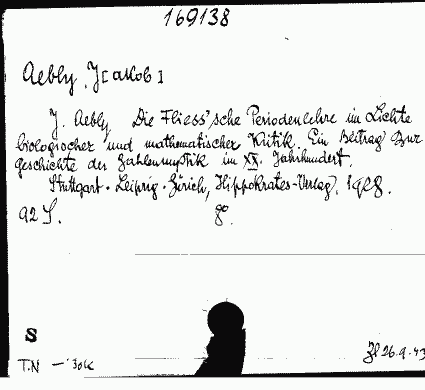 169138
Aebly, J[akob]
J. Aebly, Die Fliess'sche Periodenlehre im Lichte
biologischer und mathematischer Kritik. Ein Beitrag zur
Geschichte der Zahlenmystik im XX. Jahrhundert.
Stuttgart. Leipzig. Zürich, Hippokrates-Verlag, 1928.
92 S. 8°.
S
T.N — 30k 26.9.43